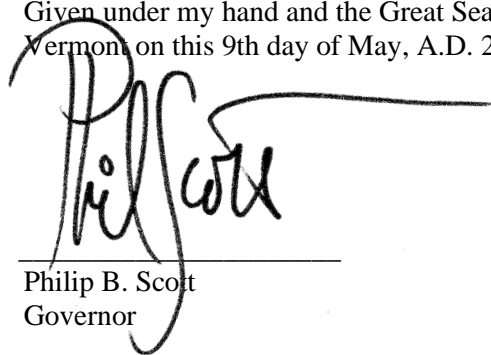 Given under my hand and the Great Sea
Vermont on this 9th day of May, A.D. 2
Phil Scott
Philip B. Scott
Governor